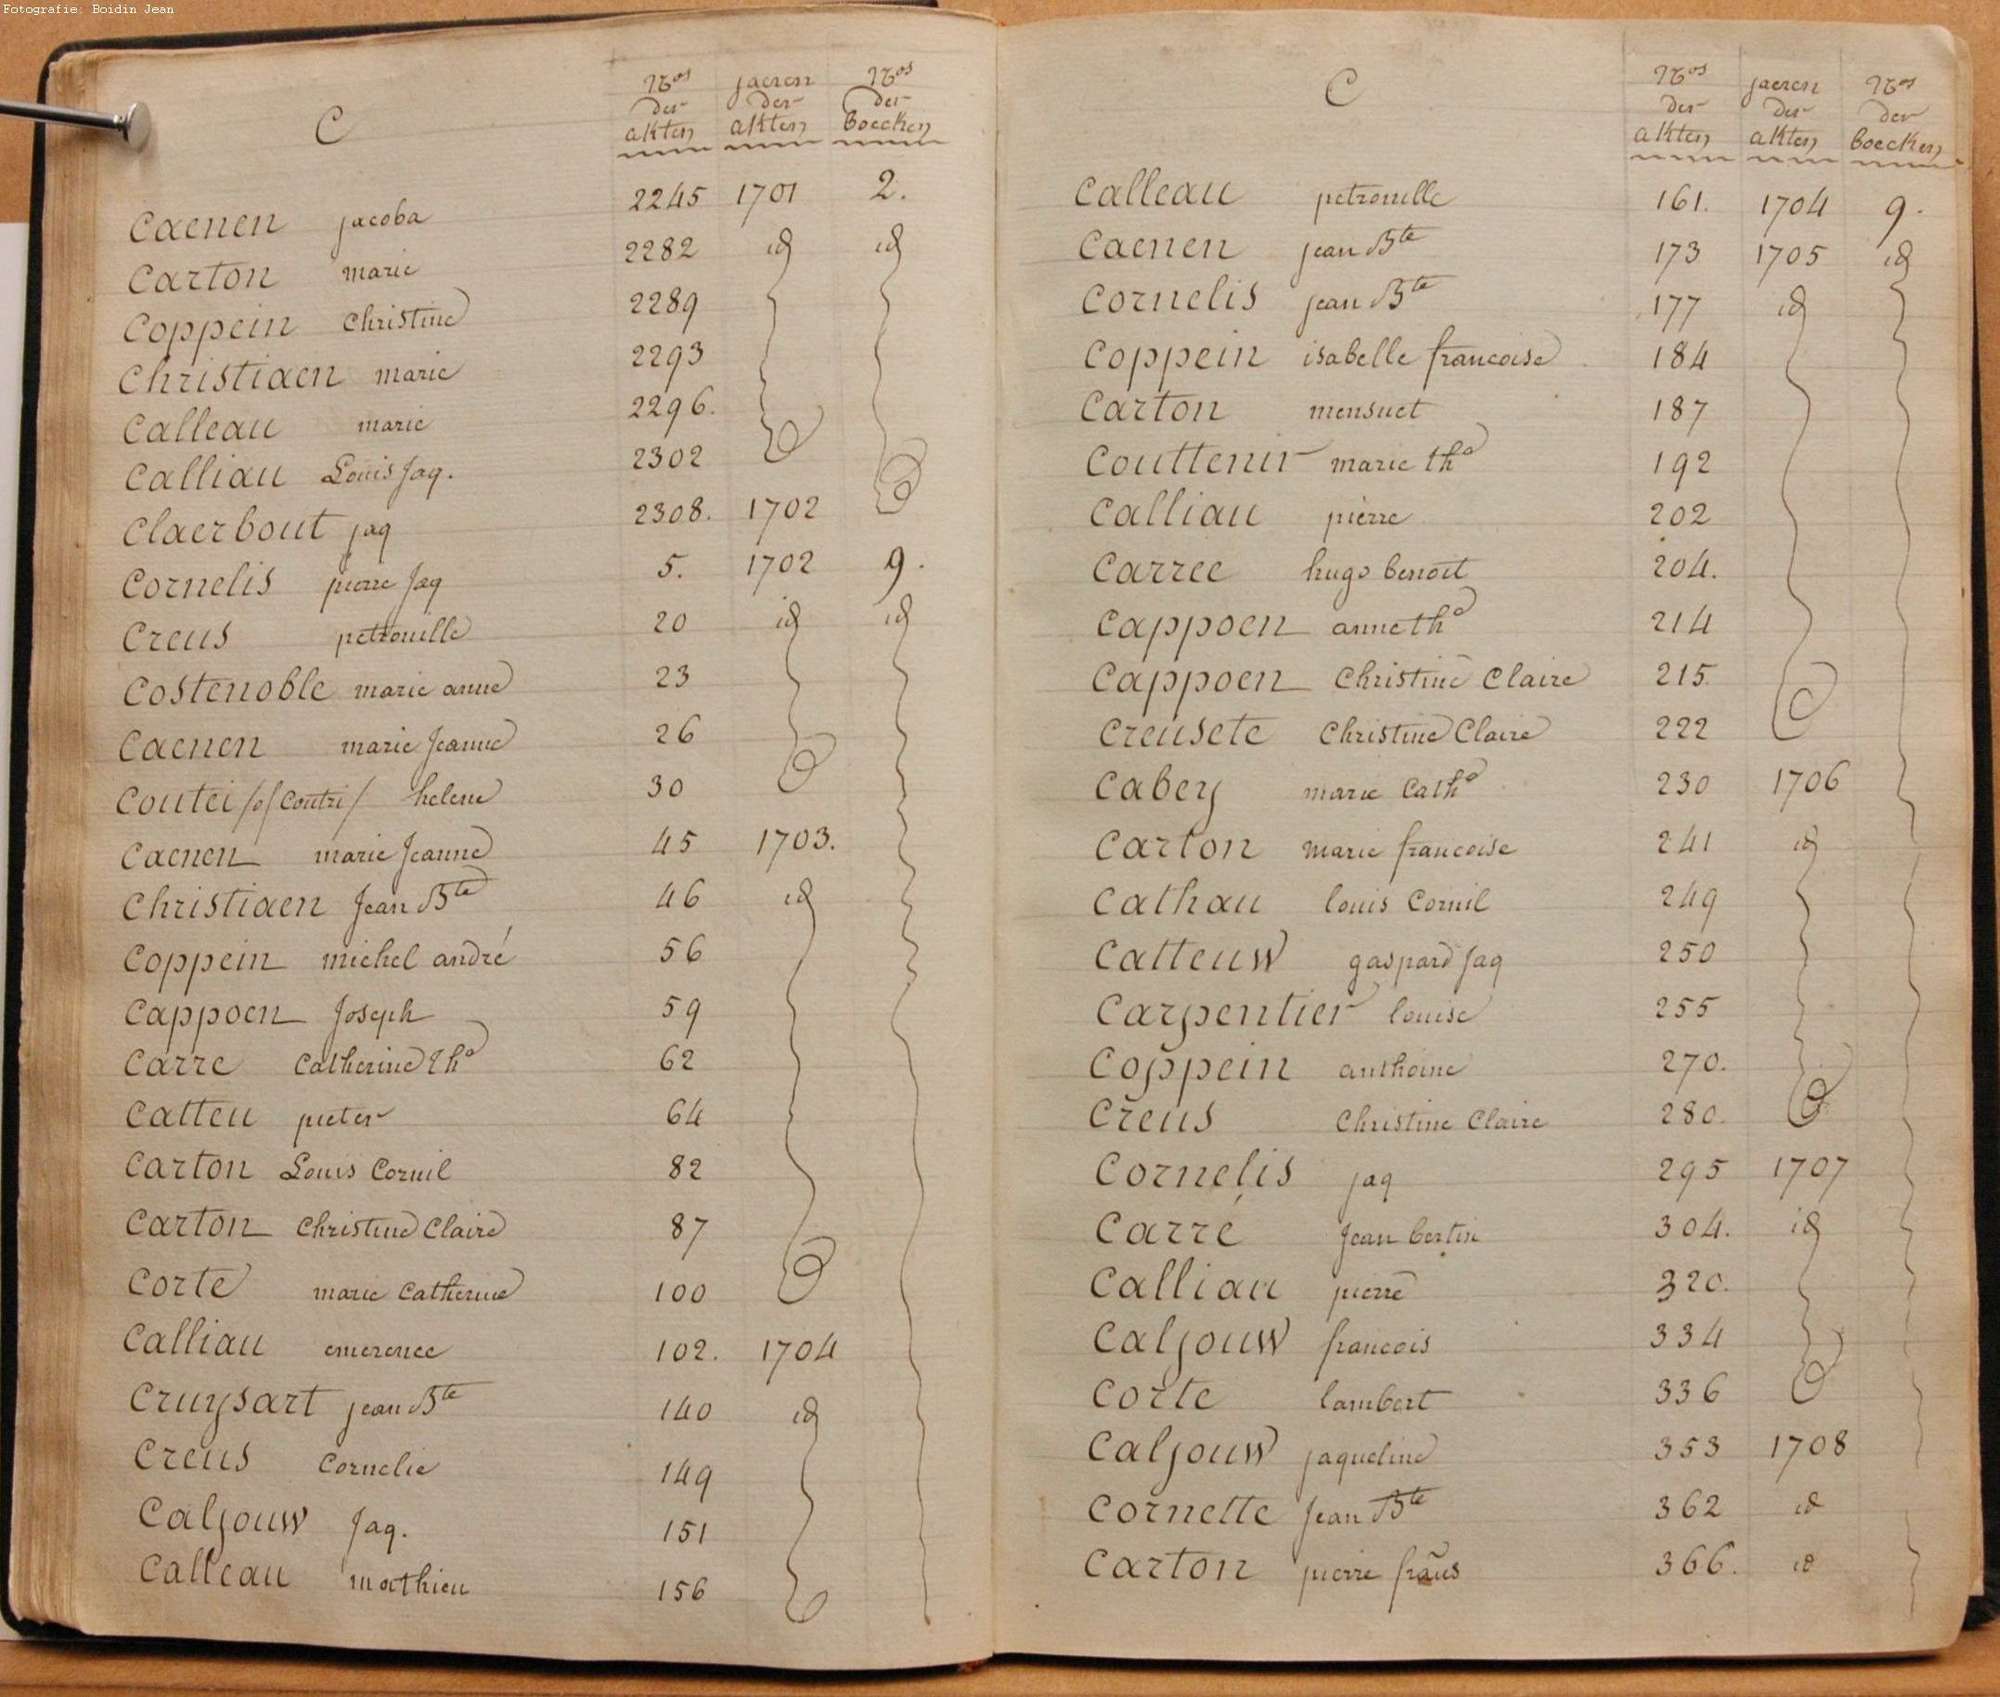 Fotografie: Boidin Jean
C
Nos der akten jaeren der akten Nos der boecken
Caenen jacoba 2245 1701 2.
Carton marie 2282 id id
Coppein Christine 2289
Christiaen marie 2293
Calleau marie 2296.
Calliau Louis Jaq. 2302
Claerbout jaq 2308. 1702
Cornelis pierre Jaq 5. 1702 9.
Creus petronille 20 id id
Costenoble marie anne 23
Caenen marie Jeanne 26
Coutei /of Coutri/ helene 30
Caenen marie Jeanne 45 1703.
Christiaen Jean Bte 46 id
Coppein michel andré 56
Cappoen Joseph 59
Carre Catherine Tha 62
Catteu pieter 64
Carton Louis Cornil 82
Carton Christine Claire 87
Corte marie Catherine 100
Calliau emerence 102. 1704
Cruysart jean Bte 140 id
Creus Cornelie 149
Caljouw Jaq. 151
Calleau mathieu 156
C
Nos der akten jaeren der akten Nos der boecken
Calleau petronille 161. 1704 9.
Caenen jean Bte 173 1705 id
Cornelis jean Bte 177 id
Coppein isabelle francoise 184
Carton mensuet 187
Couttenir marie tha 192
Calliau pierre 202
Carree hugo benoit 204.
Cappoen anne tha 214
Cappoen Christine Claire 215
Creusete Christine Claire 222
Cabey marie Catha 230 1706
Carton marie francoise 241 id
Cathau louis Cornil 249
Catteuw gaspard Jaq 250
Carpentier louise 255
Coppein anthoine 270.
Creus Christine Claire 280.
Cornelis jaq 295 1707
Carré Jean bertin 304. id
Calliau pierre 320.
Caljouw francois 334
Corte lambert 336
Caljouw jaqueline 353 1708
Cornette Jean Bte 362 id
Carton pierre frans 366. id